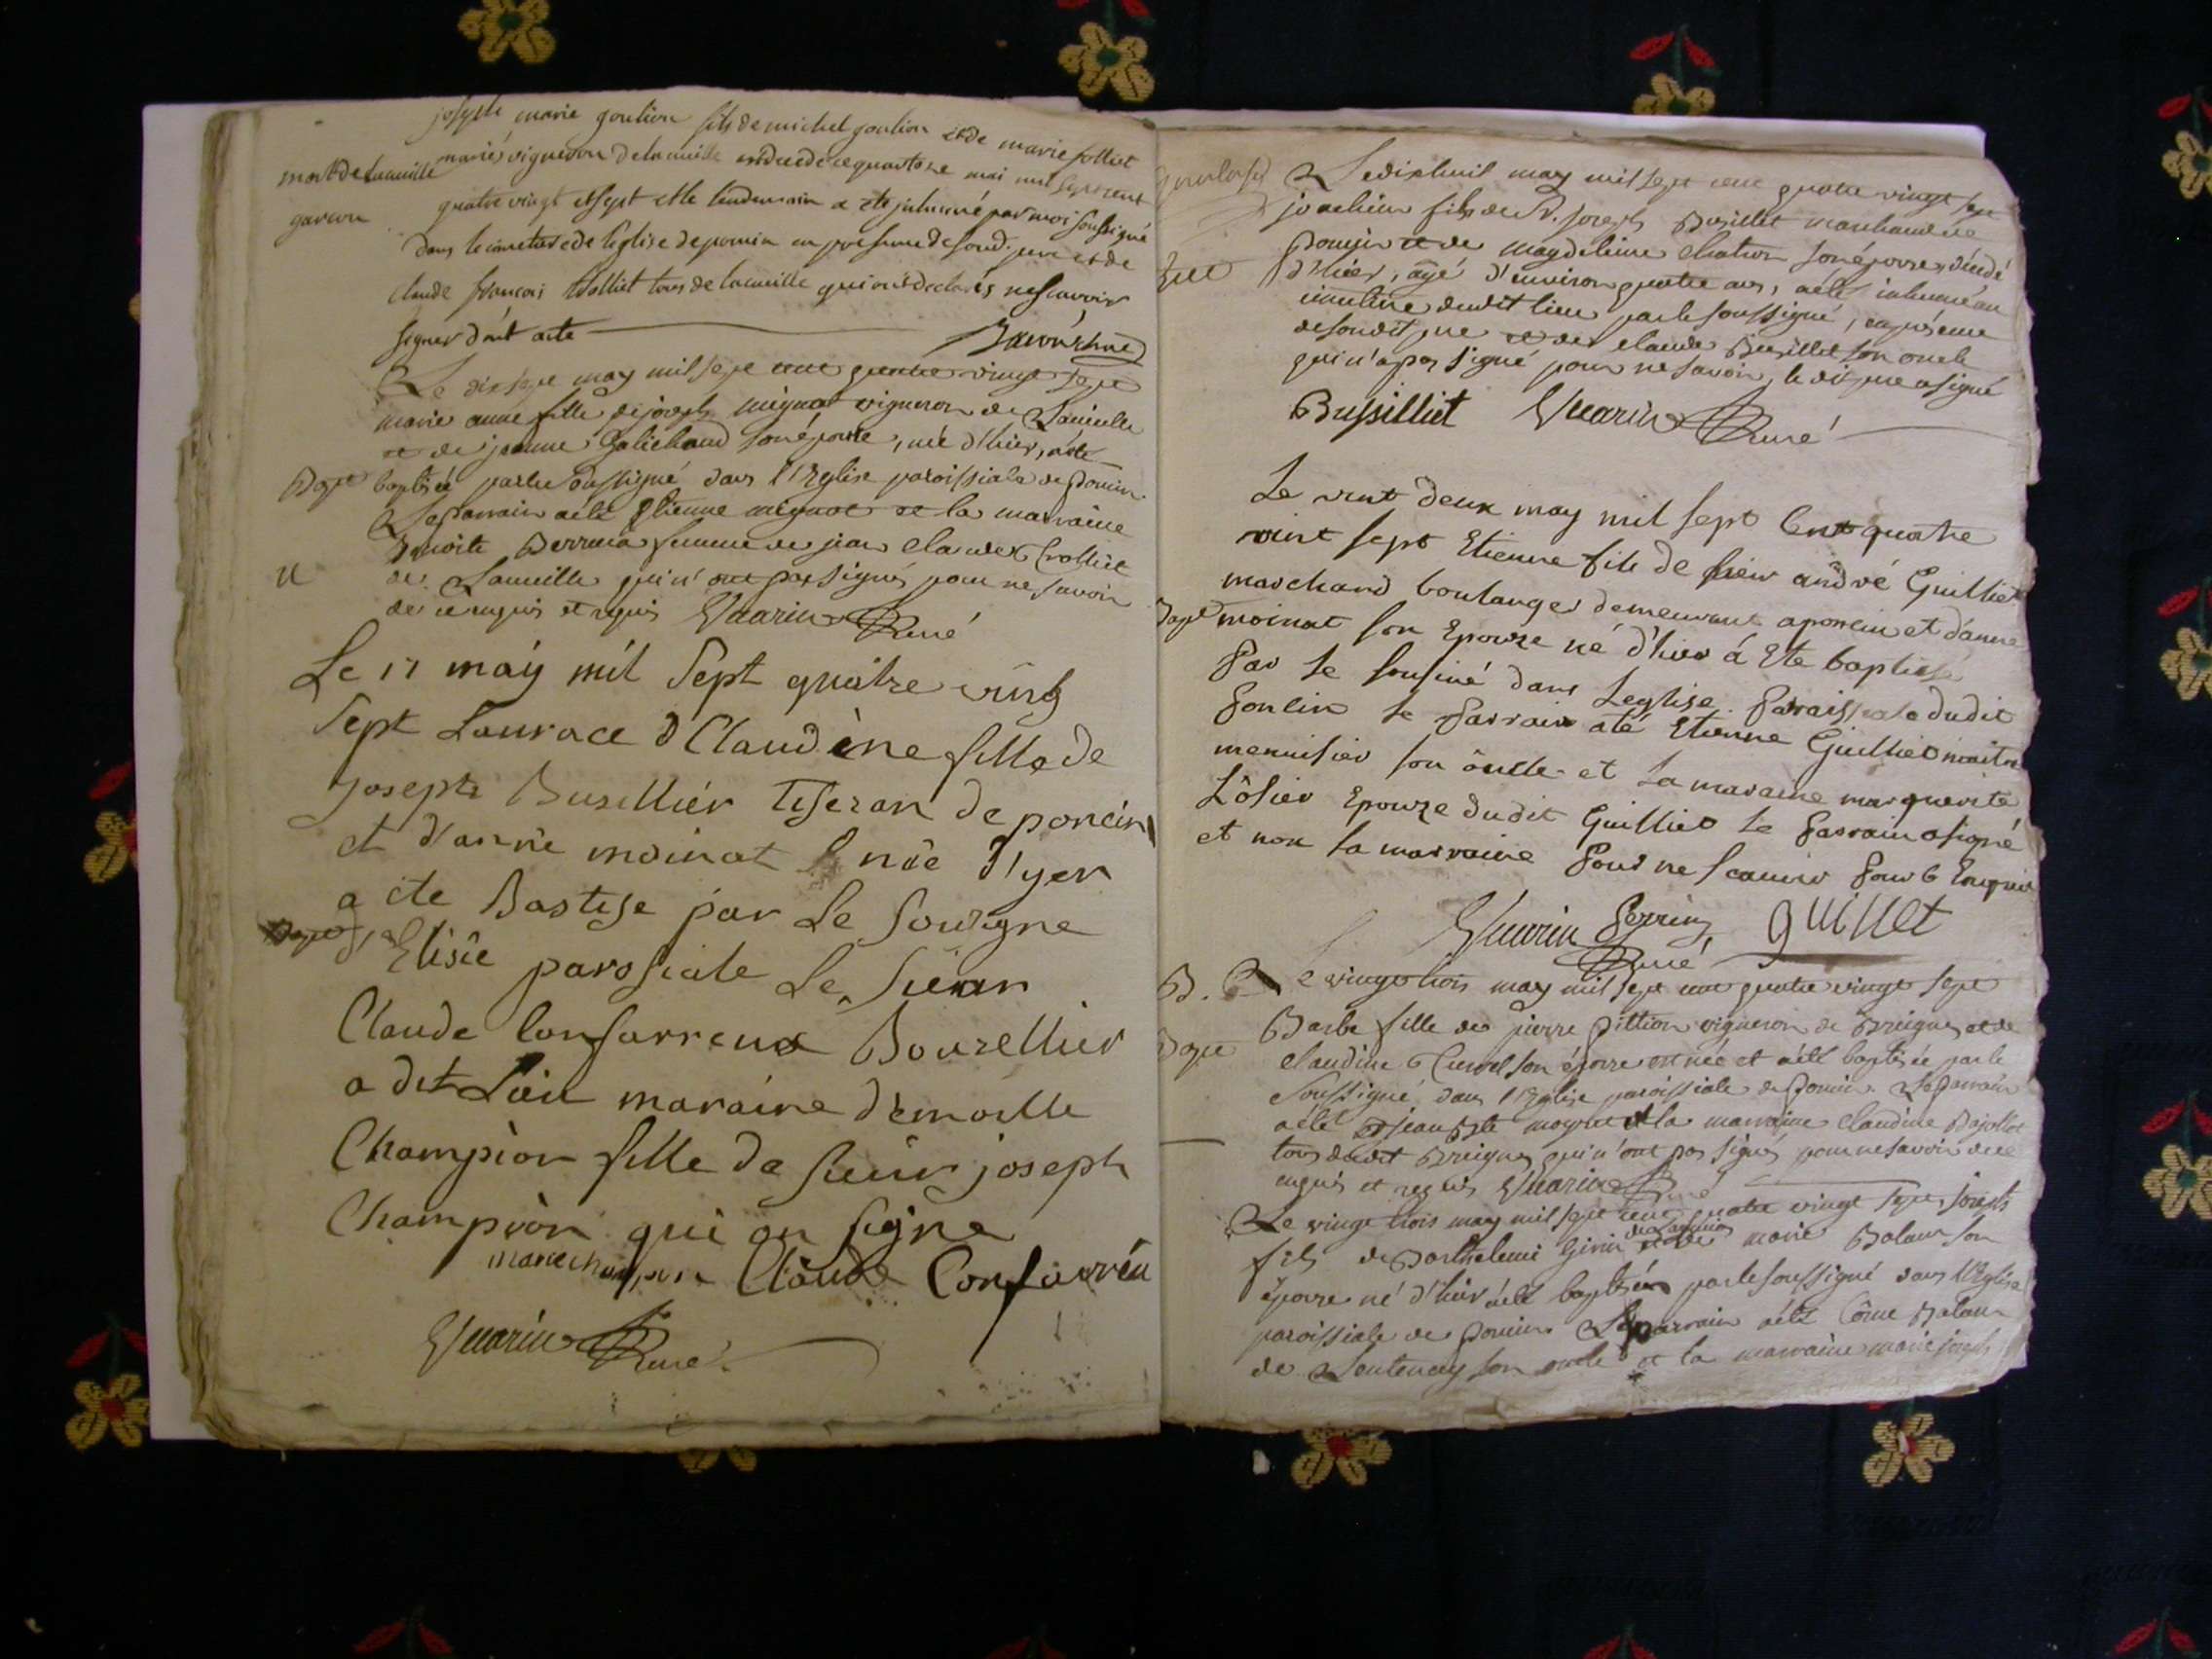 joseph marie goulion fils de michel goulion et de marie folliet
mort de lacueille mariés vignerons de lacueille décédé ce quatorze mai mil sept cent
garcon quatre vingt et sept et le lendemain a ete inhumé par moi soussigné
dans le cimetiere de l'eglise de poncin en presence de son d. pere et de
claude francois tous de lacueille qui ont declarés ne scavoir
signer dont acte
Le dix sept may mil sept cent quatre vingt sept
marie anne fille de joseph mignot vigneron de Lacueille
et de jeanne son épouse, née d'hier, a été
Bapt baptisée par le soussigné dans l'Eglise paroissiale de Poncin.
Le Parrain a été Etienne mignot et la marraine
Benoite femme de jean claude
de Lacueille qui n'ont pas signés pour ne savoir
de ce enquis et requis Guarin Curé
Le 17 may mil Sept quatre vingt
Sept Laurace d Claudine fille de
Joseph Buselliér Tiseran de poncin
et d'anne moinat née d'yer
a ete Bastese par Le Souzigne
Elisie parosiale Le Sieur
Claude Confavreux Bourellier
a dit Lieu maraine demoille
Champion fille de Sieur joseph
Champion qui on signe
marie champion Claude Confavreu
Guarin Curé
Le dix huit may mil sept cent quatre vingt sept
joachim fils de Sr. joseph Busillet marchand de
Poncin et de magdeleine chation son épouse, décédé
d'hier, âgé d'environ quatre ans, a été inhumé au
cimetiere dudit lieu par le soussigné, en présence
de son dit pere et de claude Busillet son oncle
qui n'a pas signé pour ne savoir, le dit pere a signé
Bussilliet Guarin Curé
Le vint deux may mil sept Cent quatre
vint sept Etienne fils de sieur andré Guilliet
marchand boulanger demeurant a poncin et d'anne
Bapt moinat son Epouze né d'hier á Ete baptisé
Par le sousiné dans Leglise Paraissiale dudit
Poncin le Parrain até Etienne Guilliet maitre
menuisier son oncle et la maraine marguerite
Lôsier Epouze dudit Guilliet le Parrain a signé
et non la marraine Pour ne scavoir Pour Enquis
Guarin Perrin Guillet
Curé
B. Le vingt trois may mil sept cent quatre vingt sept
Barbe fille de pierre Pittion vigneron de Breignes et de
Bapt claudine son épouse est née et a été baptisée par le
Soussigné dans l'Eglise paroissiale de Poncin. Le Parrain
a été jean Bte et la marraine claudine Bajollot
tous dudit Breignes qui n'ont pas signés pour ne savoir de ce
enquis et requis Guarin Curé
Le vingt trois may mil sept cent quatre vingt sept, joseph
fils de Barthelemi Girin et de marie Balan son
épouse né d'hier a été baptisés par le soussigné dans l'Eglise
paroissiale de Poncin. Le parrain a été Côme Balan
de Lentenay son oncle et la marraine marie joseph